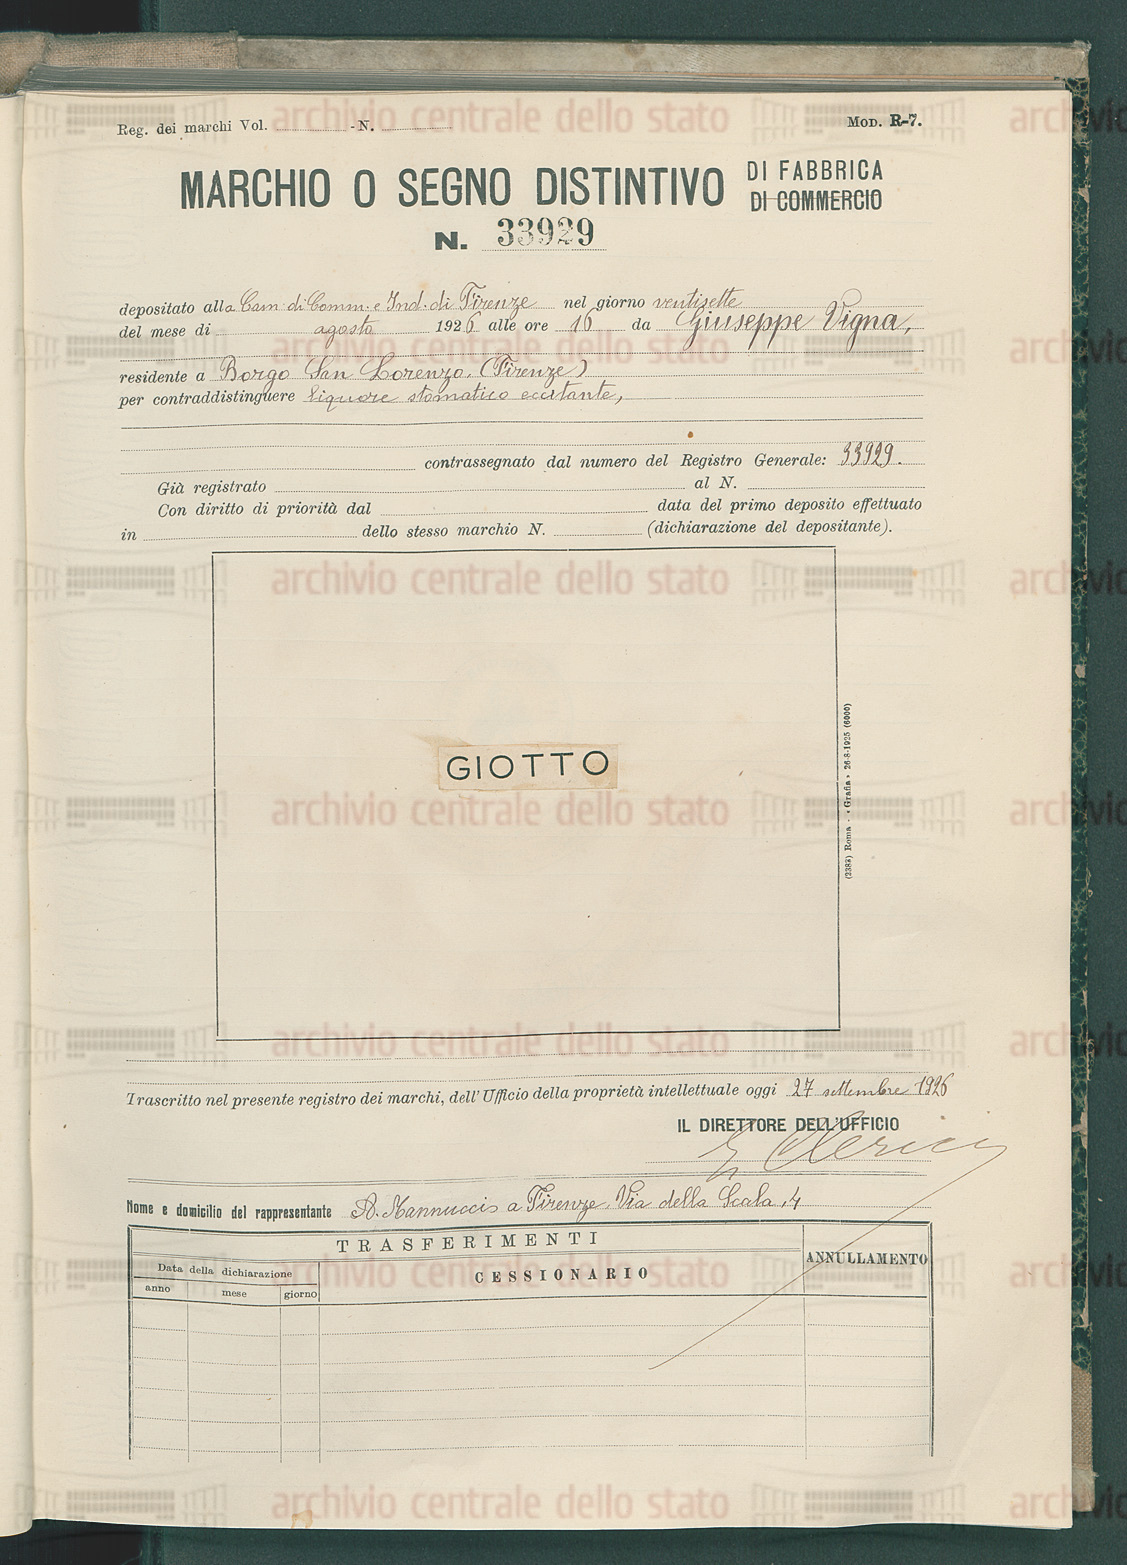 Reg. dei marchi Vol. - N. Mod. R-7.
MARCHIO O SEGNO DISTINTIVO DI FABBRICA
DI COMMERCIO
N. 33929
depositato alla Cam. di Comm. e Ind. di Firenze nel giorno ventisette
del mese di agosto 1926 alle ore 16 da Giuseppe Vigna,
residente a Borgo San Lorenzo. (Firenze)
per contraddistinguere liquore stomatico eccitante,
contrassegnato dal numero del Registro Generale: 33929.
Già registrato al N.
Con diritto di priorità dal data del primo deposito effettuato
in dello stesso marchio N. (dichiarazione del depositante).
GIOTTO
(2383) Roma - «Grafia» 26-8-1925 (6000)
Trascritto nel presente registro dei marchi, dell'Ufficio della proprietà intellettuale oggi 27 settembre 1926
IL DIRETTORE DELL'UFFICIO
Nome e domicilio del rappresentante A. Mannuccis a Firenze. Via della Scala, 4
TRASFERIMENTI
ANNULLAMENTO
Data della dichiarazione
CESSIONARIO
anno mese giorno
archivio centrale dello stato